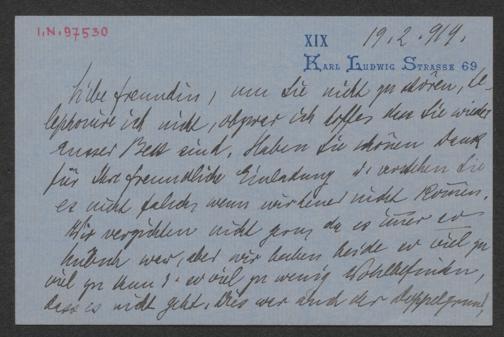 I.N. 97530
19.2.914.
XIX
KARL LUDWIG STRASSE 69
Liebe Freundin, um Sie nicht zu stören, te-
lephoniere ich nicht, obzwar ich hoffe dass Sie wieder
ausser Bett sind. Haben Sie schönen Dank
für Ihre freundliche Einladung u. verstehen Sie
es nicht falsch, wenn wir heuer nicht kommen.
Wir verzichten nicht gern da es immer so
hübsch war, aber wir haben beide so viel zu
viel zu tun u. so viel zu wenig Wohlbefinden,
dass es nicht geht. Dies war auch der Doppelgrund,